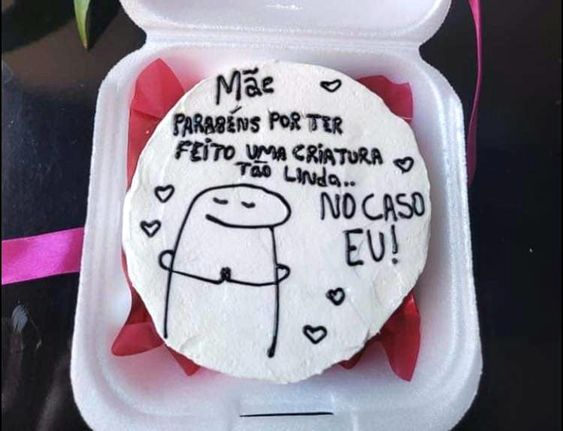 Mãe
PARABÉNS POR TER
FEITO UMA CRIATURA
TÃO LINDA..
NO CASO
EU!